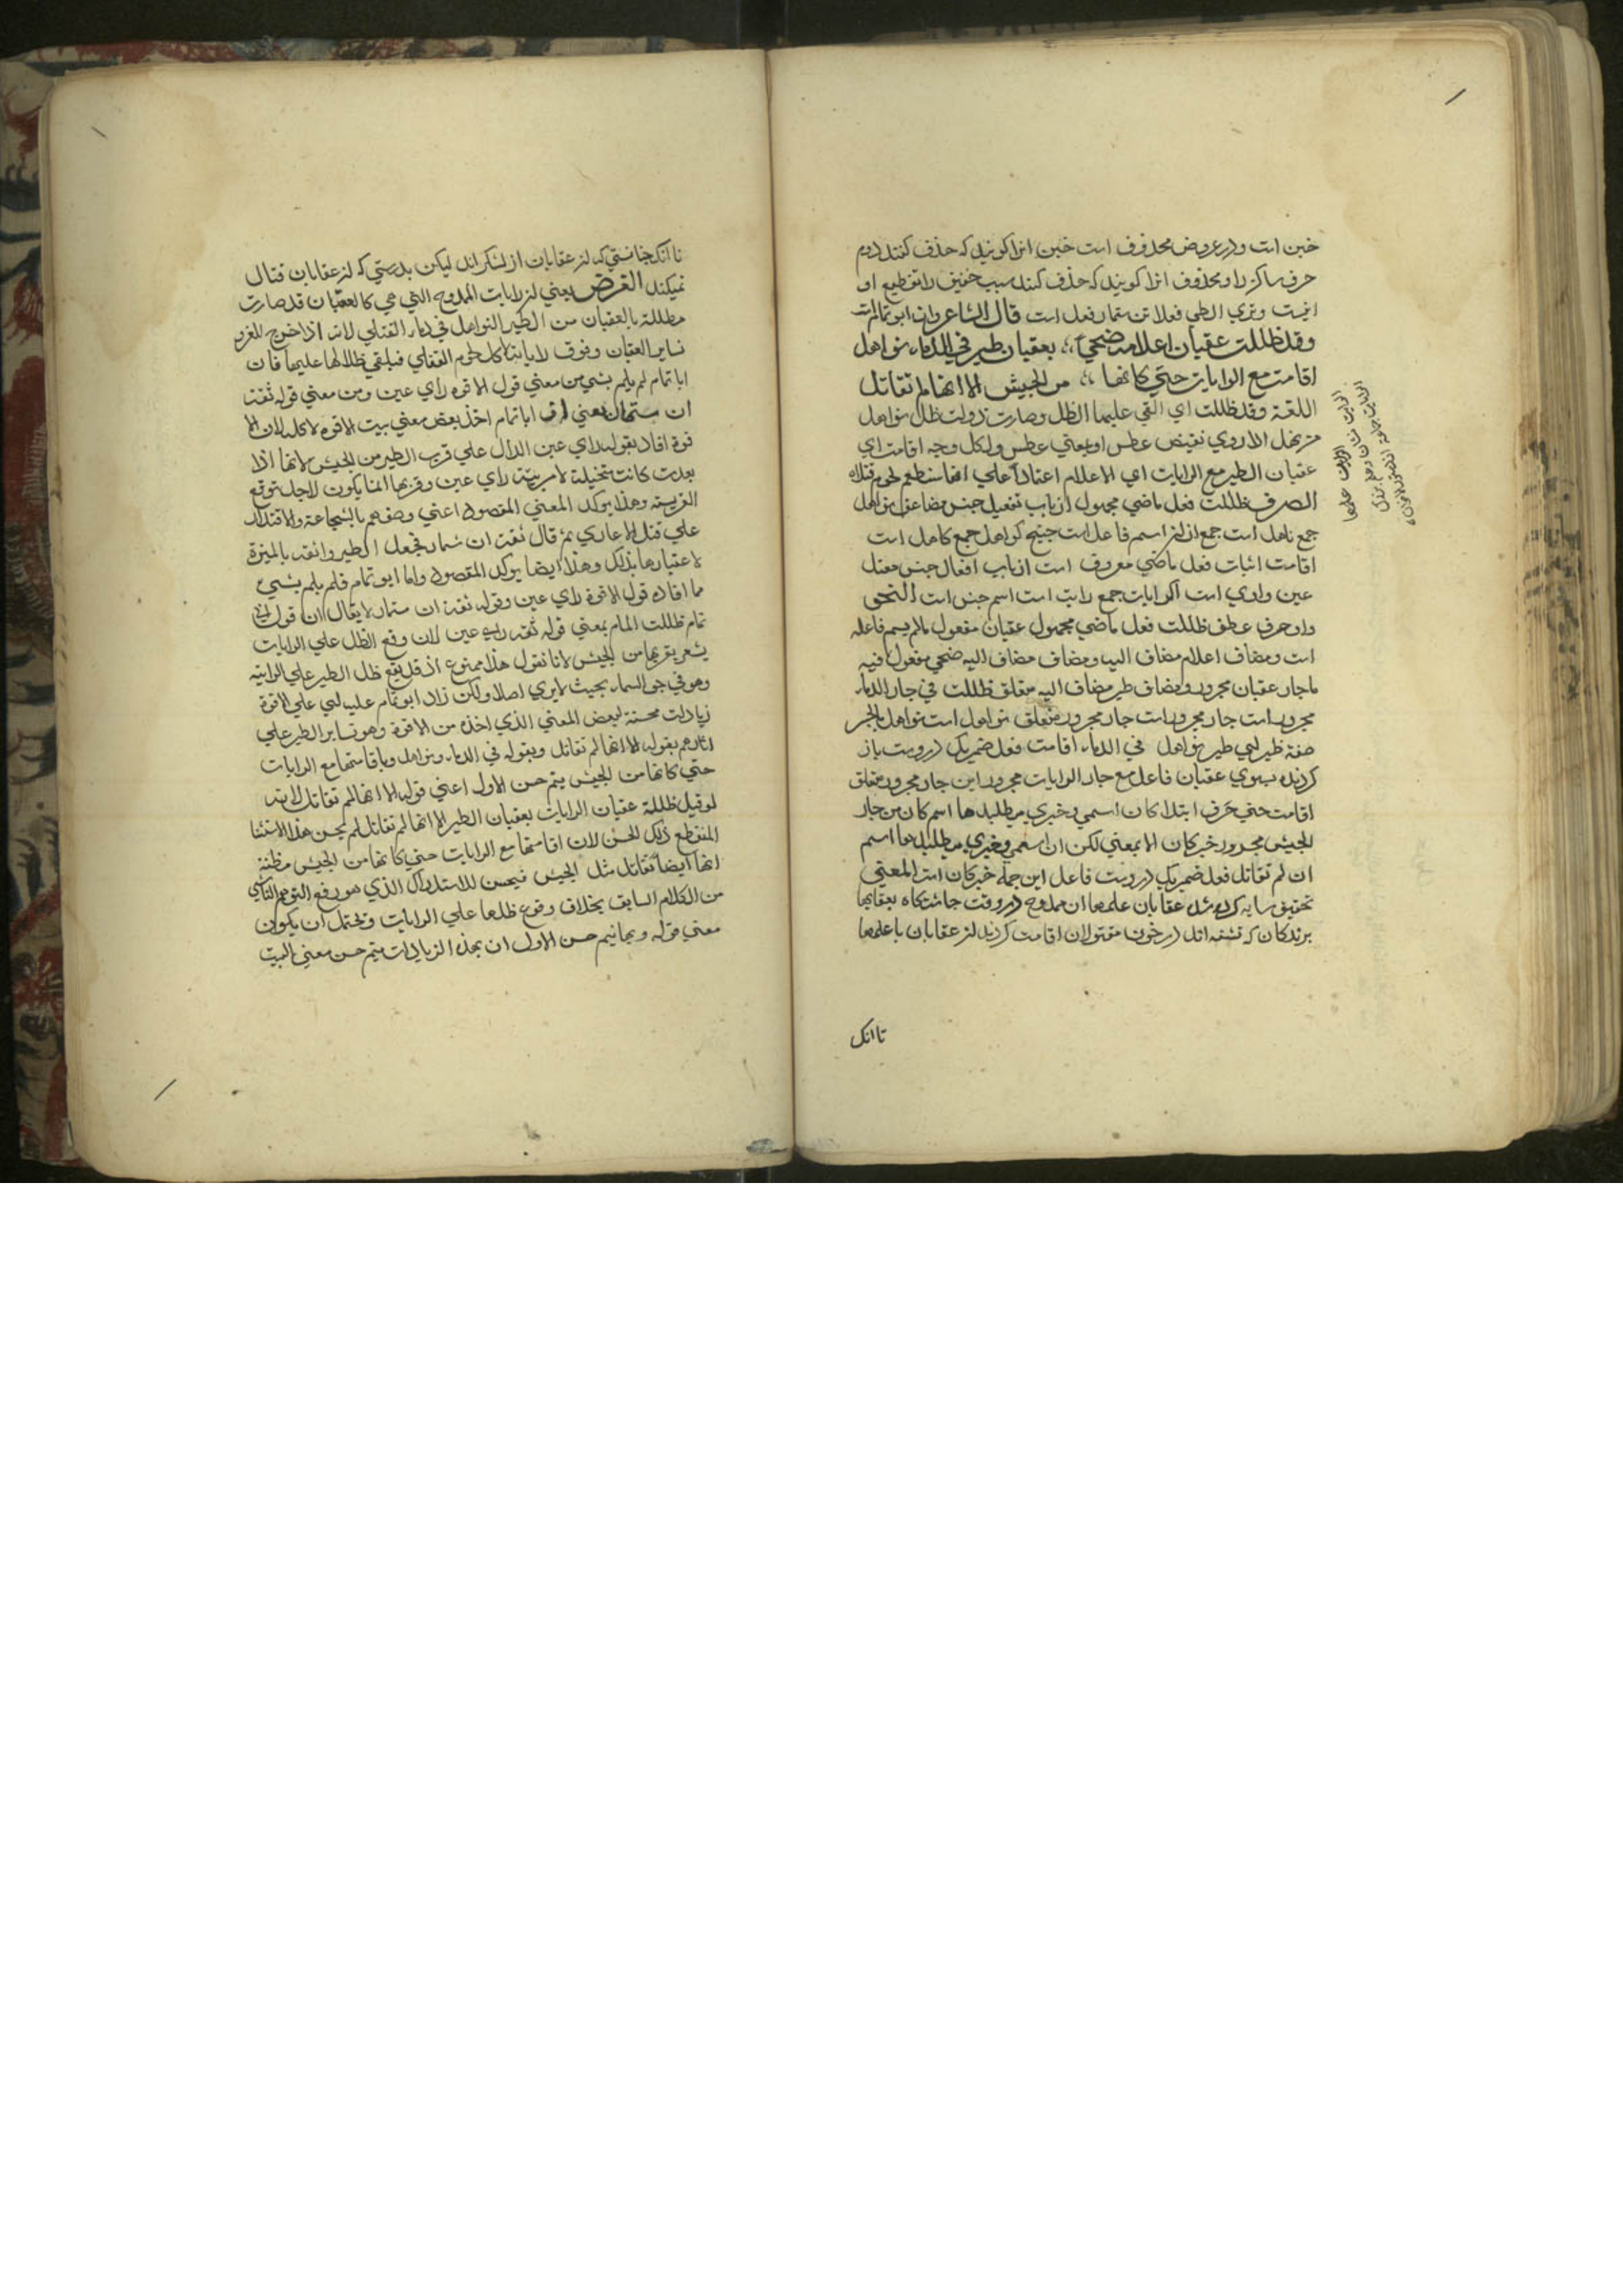 خبن است ودر عروض محذوف است خبن انرا کویند که حذف کنند دوم
حرف ساکن را ومحذوف انرا کویند که حذف کنند سبب خفیف را تقطیع او
اینست وتری الطی فعلاتن ستمار فعل است قال الشاعر وان ابو تمام است
وقد ظللت عقبان اعلامه ضحی بعقبان طیر فی الدماء نواهل
اقامت مع الرایات حتی کانها من الجیش الا انها لم تقاتل
اللغة وقد ظللت ای القی علیها الظل وصارت ذوات ظل نواهل
من نهل الاروی نقیض عطس او بمعنی عطس ولکل وجه اقامت ای
عقبان الطیر مع الرایات ای الاعلام اعتمادا علی انها ستطعم لحوم قتلاه
الصرف ظللت فعل ماضی مجهول از باب تفعیل جنس مضاعف نواهل
جمع ناهل است جمع ان از اسم فاعل است جنیح کواهل جمع کاهل است
اقامت اثبات فعل ماضی معروف است از باب افعال جنس معتل
عین واوی است الرایات جمع رایت است اسم جنس است النحو
واو حرف عطف ظللت فعل ماضی مجهول عقبان مفعول مالم یسم فاعله
است ومضاف اعلام مضاف الیه ومضاف مضاف الیه ضحی مفعول فیه
با جار عقبان مجرور ومضاف طیر مضاف الیه متعلق ظللت فی جار الدماء
مجرور است جار مجرور است جار مجرور متعلق نواهل است نواهل بالجر
صفة طیر ای طیر نواهل فی الدماء اقامت فعل ضمیر یک درویست باز
کردنده بسوی عقبان فاعل مع جار الرایات مجرور این جار مجرور متعلق
اقامت حتی حرف ابتدا کان اسمی وخبری میطلبد ها اسم کان من جار
الجیش مجرور خبر کان الا بمعنی لکن ان اسمی وخبری میطلبد ها اسم
ان لم تقاتل فعل ضمیر یک درویست فاعل این جمله خبر کان است المعنی
تحقیق سایه کرده شد عقابان علمها ان ممدوح در وقت جاشتکاه بعقابها
پرندکان که تشنه اند در خون مقتولان اقامت کردند از عقابان با علمها
تا انک
تا انک جنانستی که از عقابان از لشکر اند لیکن بدرستی که از عقابان قتال
نمیکند الغرض یعنی از رایات الممدوح التی هی کالعقبان قد صارت
مظللة بالعقبان من الطیر النواهل فی دماء القتلی لانه اذا خرج للغزو
تسایر العقبان وفوق رایاته لاکل لحوم القتلی فیلقی ظلالها علیها فان
ابا تمام لم یلم بشی من معنی قول الافوه رای عین ومن معنی قوله ثقة
ان ستمار یعنی ان ابا تمام اخذ بعض معنی بیت الافوه لا کله لان الا
فوه افاد بقوله رای عین الدال علی قرب الطیر من الجیش لانها اذا
بعدت کانت متخیلة لا مرییة رای عین وقربها انما یکون لاجل توقع
الفریسة وهذا یوکد المعنی المقصود اعنی وصفهم بالشجاعة والاقتدار
علی قتل الاعادی ثم قال ثقة ان ستمار فجعل الطیر واثقة بالمیرة
لاعتیادها بذلک وهذا ایضا یوکد المقصود واما ابو تمام فلم یلم بشی
مما افاده قول الافوه رای عین وقوله ثقة ان ستمار لا یقال ان قول ابی
تمام ظللت المام بمعنی قوله رای عین لان وقع الظل علی الرایات
یشعر بقربها من الجیش لانا نقول هذا ممنوع اذ قد یقع ظل الطیر علی الرایة
وهو فی جو السماء بحیث لا یری اصلا ولکن زاد ابو تمام علیه ای علی الافوه
زیادات محسنة لبعض المعنی الذی اخذه من الافوه وهو تسایر الطیر علی
اثارهم بقوله الا انها لم تقاتل وبقوله فی الدماء نواهل وباقامتها مع الرایات
حتی کانها من الجیش یتم حسن الاول اعنی قوله الا انها لم تقاتل لانه
لو قیل ظللة عقبان الرایات بعقبان الطیر الا انها لم تقاتل لم یحسن هذا الاستثنا
المنقطع ذلک الحسن لان اقامتها مع الرایات حتی کانها من الجیش مظنة
انها ایضا تقاتل مثل الجیش فیحسن للاستدراک الذی هو رفع التوهم الناشی
من الکلام السابق بخلاف وقوع ظلها علی الرایات ویحتمل ان یکون
معنی قوله وبها یتم حسن الاول ان بهذه الزیادات یتم حسن معنی البیت